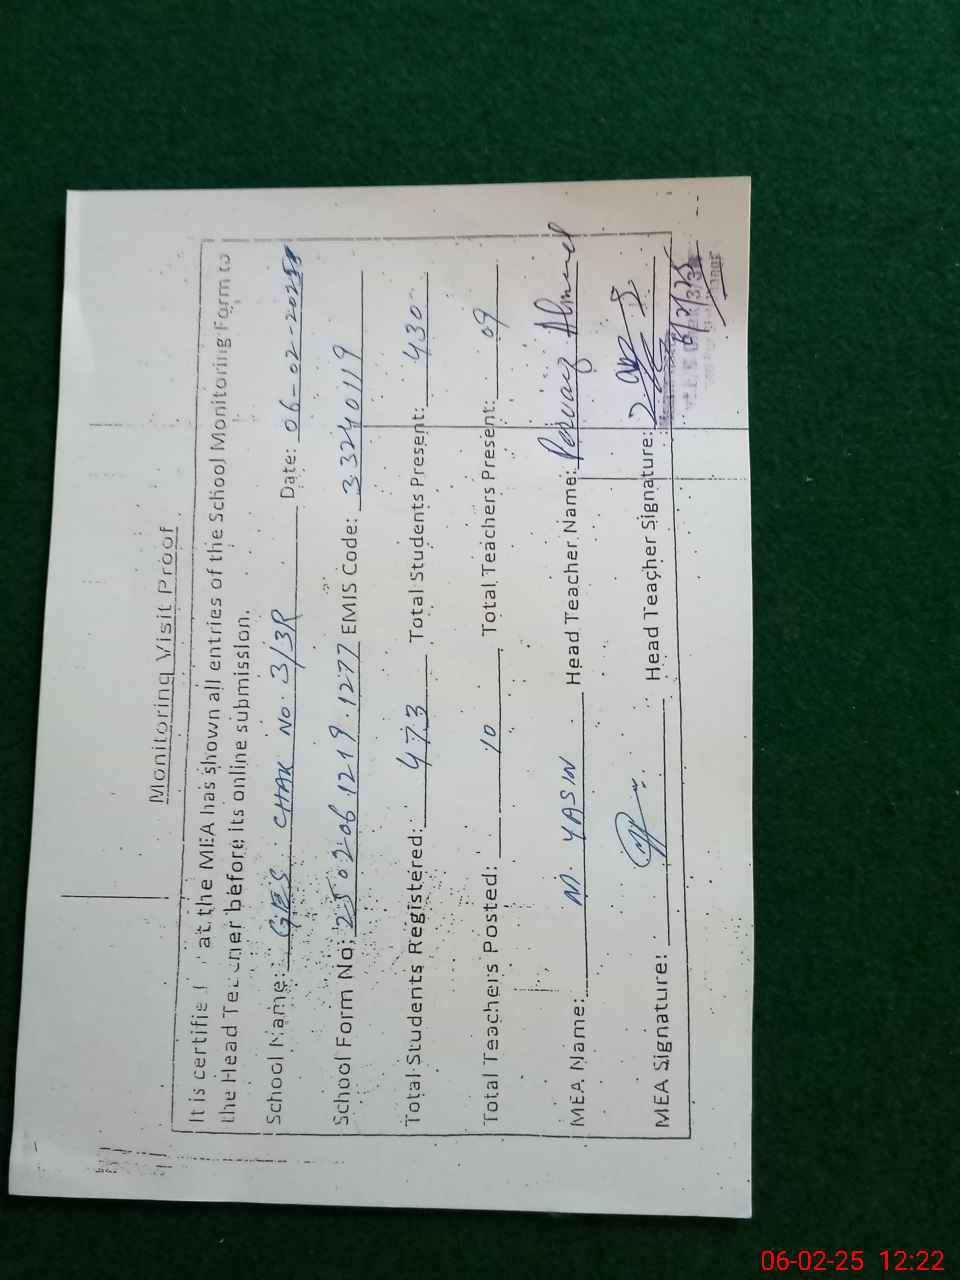 Monitoring Visit Proof
It is certifie at the MEA has shown all entries of the School Monitoring Form to
the Head Teacher before its online submission.
School Name: GES CHAK No. 3/3R Date: 06-02-2025
School Form No: 250206121912 77 EMIS Code: 33240119
Total Students Registered: 473 Total Students Present: 430
Total Teachers Posted: 10 Total Teachers Present: 09
MEA Name: M. YASIN Head Teacher Name: Pervaiz Ahmed
MEA Signature: Head Teacher Signature:
6/2/25
06-02-25 12:22